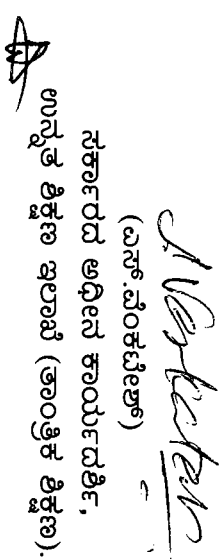 (ಎನ್.ವೆಂಕಟೇಶ್)
ಸರ್ಕಾರದ ಅಧೀನ ಕಾರ್ಯದರ್ಶಿ,
ಉನ್ನತ ಶಿಕ್ಷಣ ಇಲಾಖೆ (ತಾಂತ್ರಿಕ ಶಿಕ್ಷಣ).